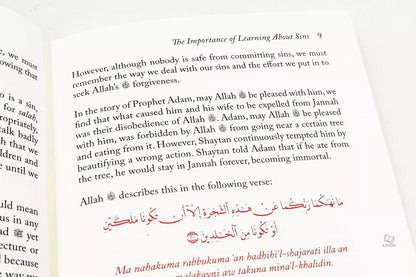 , we must
owing that
o is a sin,
for salah,
ropriately,
talk badly
ch that we
ildren and
e until we
ould mean
us in any
ad ﷺ yet
ecture or
d because
The Importance of Learning About Sins 9
However, although nobody is safe from committing sins, we must
remember the way we deal with our sins and the effort we put in to
seek Allah's ﷻ forgiveness.
In the story of Prophet Adam, may Allah ﷻ be pleased with him, we
find that what caused him and his wife to be expelled from Jannah
was their disobedience of Allah ﷻ. Adam, may Allah ﷻ be pleased
with him, was forbidden by Allah ﷻ from going near a certain tree
and eating from it. However, Shaytan continuously tempted him by
beautifying a wrong action. Shaytan told Adam that if he ate from
the tree, he would stay in Jannah forever, becoming immortal.
Allah ﷻ describes this in the following verse:
مَا نَهَىٰكُمَا رَبُّكُمَا عَنْ هَٰذِهِ الشَّجَرَةِ إِلَّا أَن تَكُونَا مَلَكَيْنِ
أَوْ تَكُونَا مِنَ الْخَالِدِينَ
Ma nahakuma rabbukuma 'an hadhihi'l-shajarati illa an
malakayni aw takuna mina'l-khalidin.